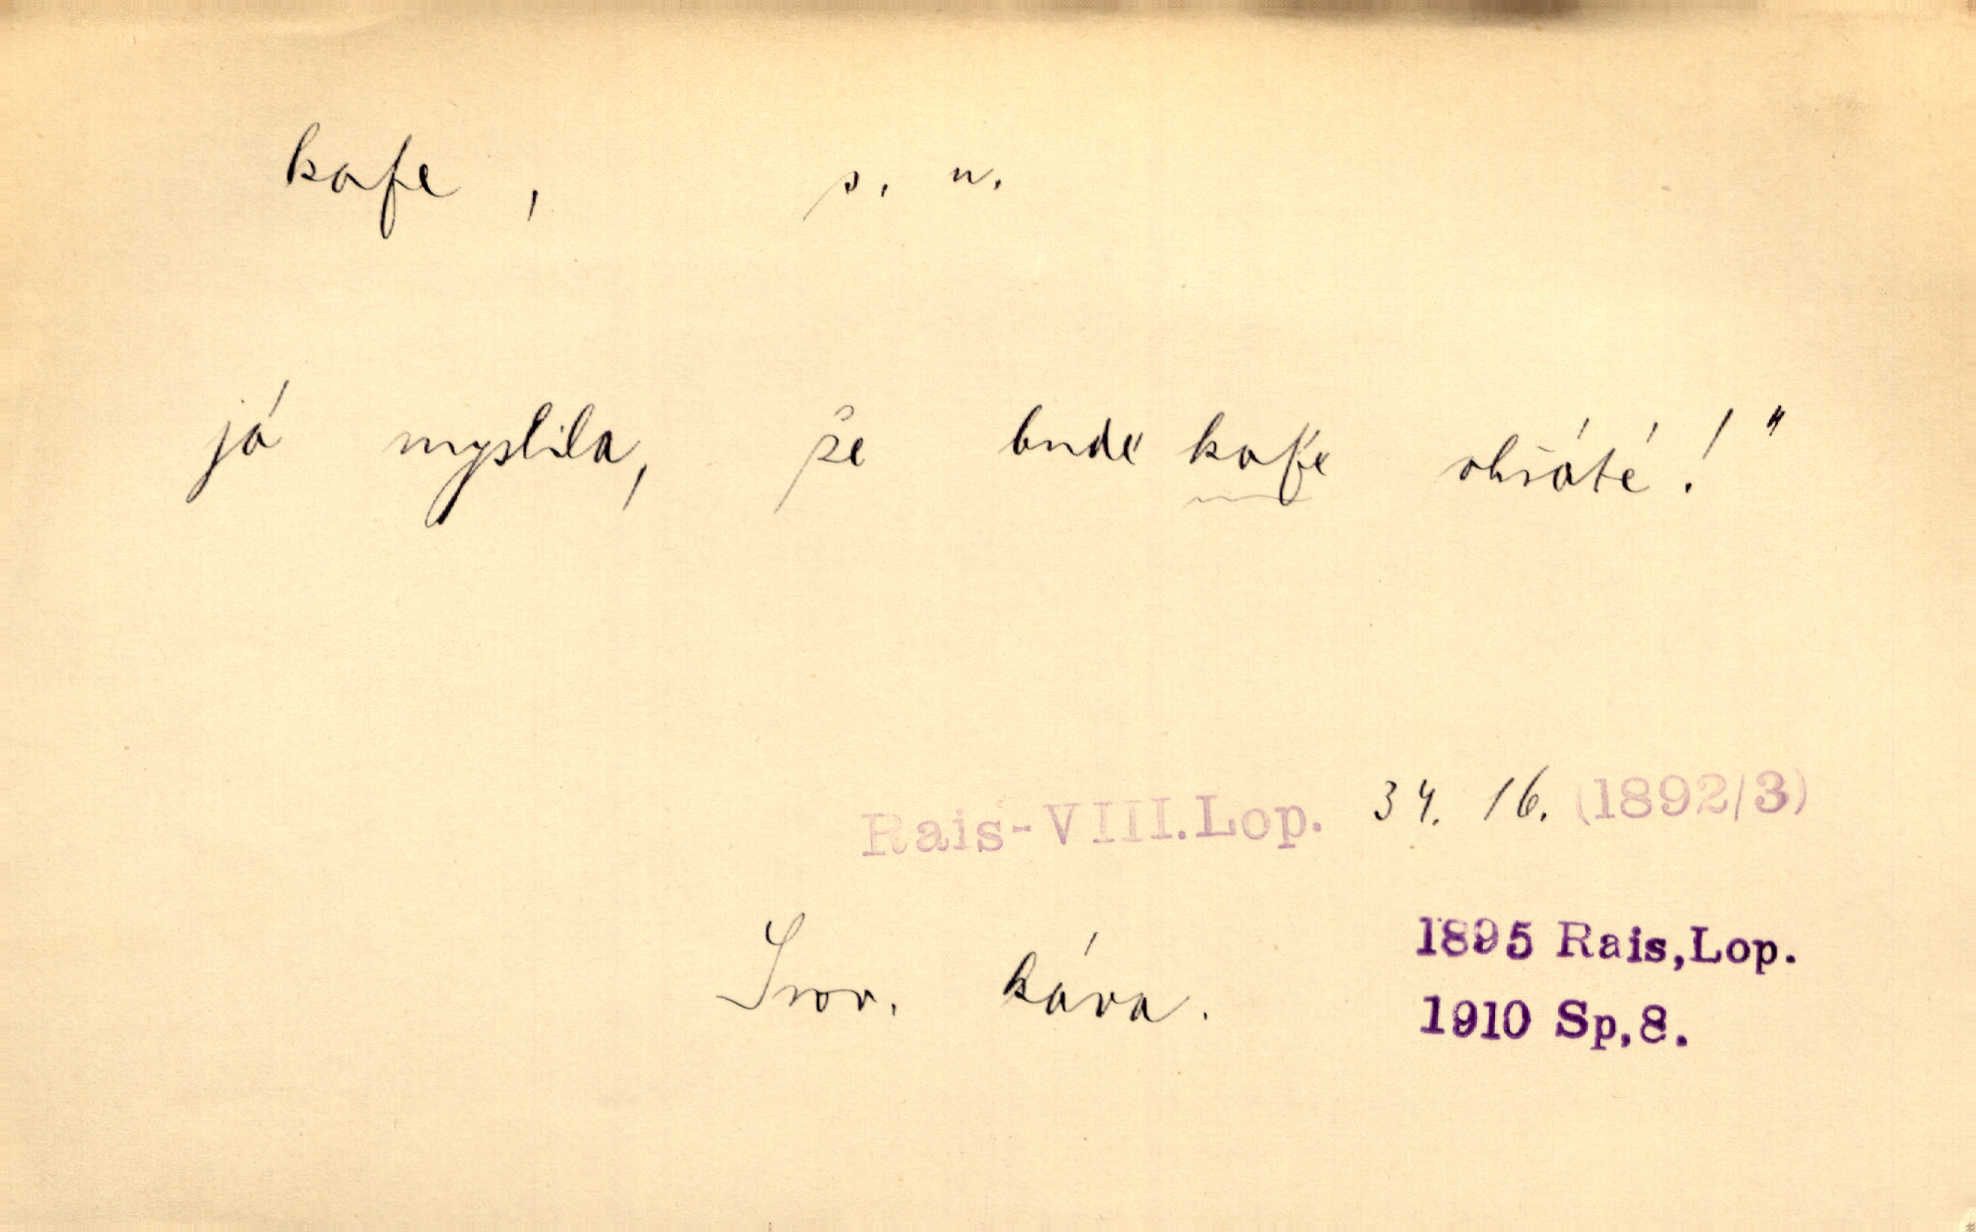 kafe, s. n.
já myslila, že bude kafe ohřáté!"
Rais-VIII.Lop. 34. 16. (1892/3)
Srov. káva.
1895 Rais,Lop.
1910 Sp,8.